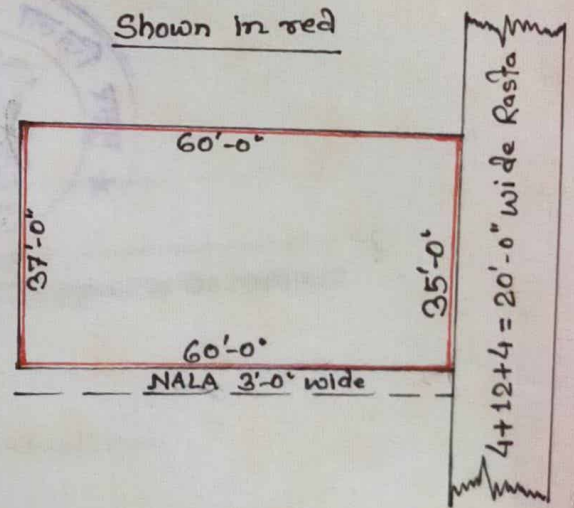 Shown in red
60'-0"
37'-0"
35'-0"
60'-0"
NALA 3'-0" wide
4+12+4 = 20'-0" wide Rasta